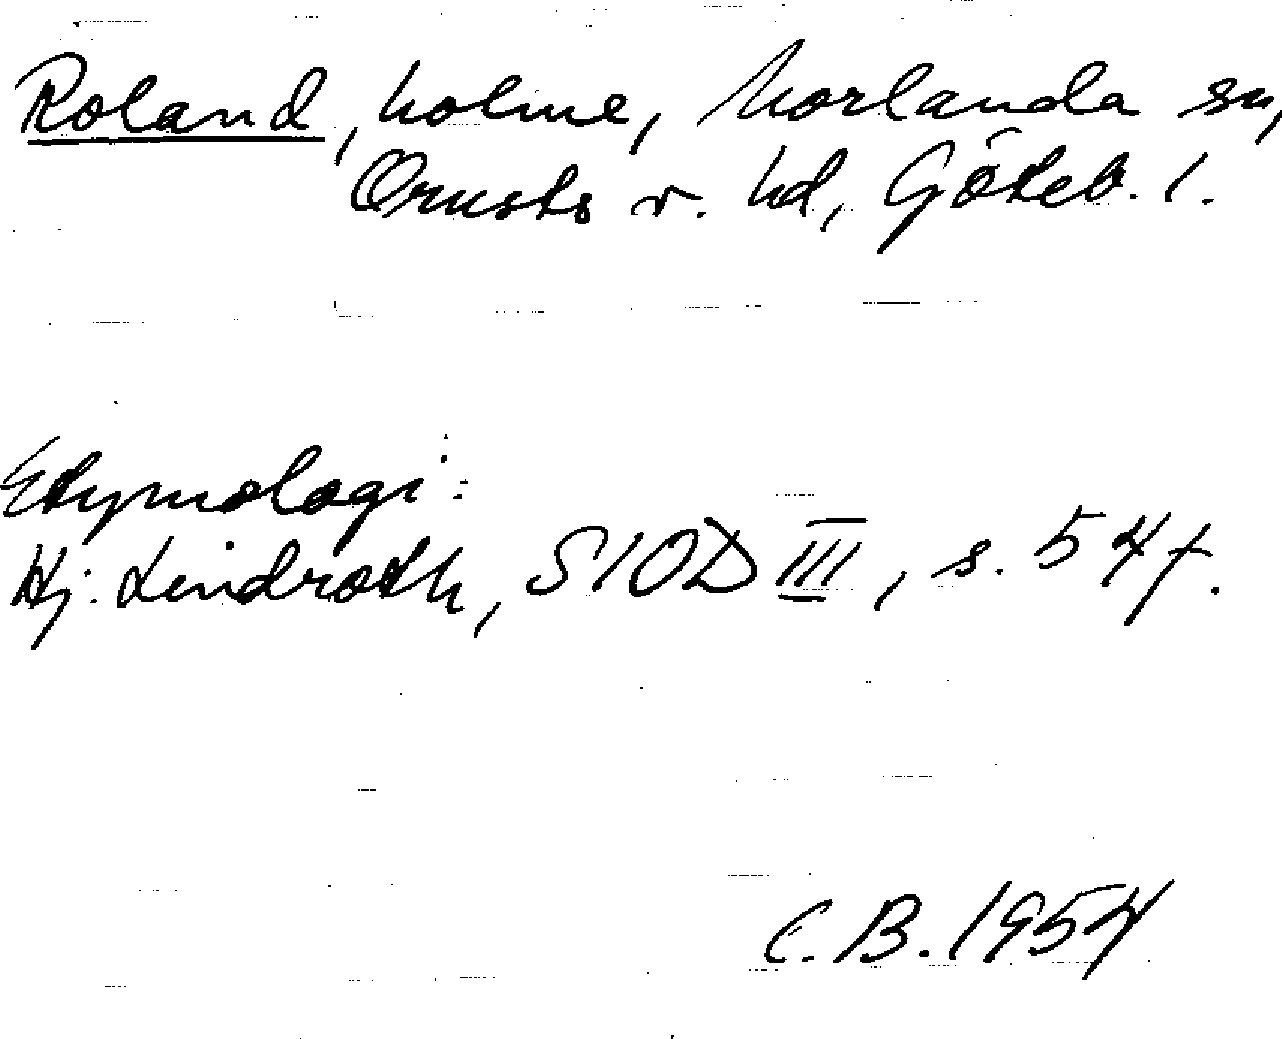 Roland, holme, Morlanda sn,
Orusts v. hd, Göteb. l.
Etymologi:
Hj. Lindroth, SIOD III, s. 54 f.
C.B. 1954